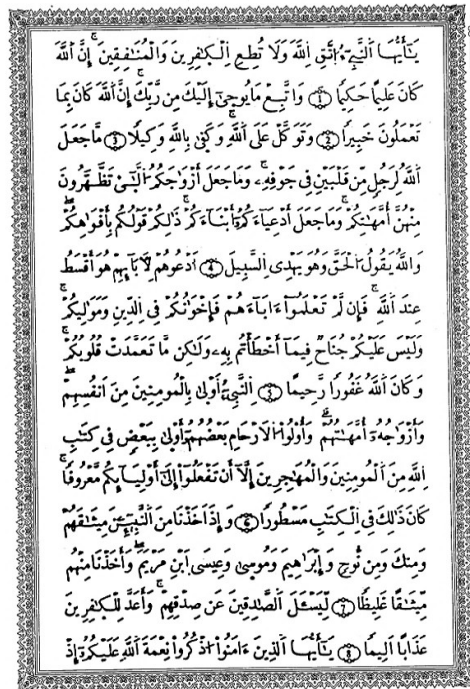 يَٰٓأَيُّهَا اَلنَّبِيٓءُ اُتَّقِ اِللَّهَ وَلَا تُطِعِ اِلْكَٰفِرِينَ وَالْمُنَٰفِقِينَ إِنَّ اَللَّهَ
كَانَ عَلِيمًا حَكِيمًا ١ وَاتَّبِعْ مَا يُوحَىٰٓ إِلَيْكَ مِن رَّبِّكَ إِنَّ اَللَّهَ كَانَ بِمَا
تَعْمَلُونَ خَبِيرًا ٢ وَتَوَكَّلْ عَلَى اَللَّهِ وَكَفَىٰ بِاللَّهِ وَكِيلًا ٣ مَّا جَعَلَ
اَللَّهُ لِرَجُلٍ مِّن قَلْبَيْنِ فِي جَوْفِهِۦ وَمَا جَعَلَ أَزْوَٰجَكُمُ اُلَّٰٓـِٔي تَظَّهَّرُونَ
مِنْهُنَّ أُمَّهَٰتِكُمْ وَمَا جَعَلَ أَدْعِيَآءَكُمُۥٓ أَبْنَآءَكُمْ ذَٰلِكُمْ قَوْلُكُم بِأَفْوَٰهِكُمْ
وَاللَّهُ يَقُولُ اُلْحَقَّ وَهُوَ يَهْدِي اِلسَّبِيلَ ٤ اَدْعُوهُمْ لِأَبَآئِهِمْ هُوَ أَقْسَطُ
عِندَ اَللَّهِ فَإِن لَّمْ تَعْلَمُوٓاْ ءَابَآءَهُمْ فَإِخْوَٰنُكُمْ فِي اِلدِّينِ وَمَوَٰلِيكُمْ
وَلَيْسَ عَلَيْكُمْ جُنَاحٌ فِيمَآ أَخْطَأْتُم بِهِۦ وَلَٰكِن مَّا تَعَمَّدَتْ قُلُوبُكُمْ
وَكَانَ اَللَّهُ غَفُورًا رَّحِيمًا ٥ اِلنَّبِيٓءُ اَوْلَىٰ بِالْمُومِنِينَ مِنَ اَنفُسِهِمْ
وَأَزْوَٰجُهُۥٓ أُمَّهَٰتُهُمْ وَأُوْلُواْ اُلَارْحَامِ بَعْضُهُمُۥٓ أَوْلَىٰ بِبَعْضٍ فِي كِتَٰبِ
اِللَّهِ مِنَ اَلْمُومِنِينَ وَالْمُهَٰجِرِينَ إِلَّآ أَن تَفْعَلُوٓاْ إِلَىٰٓ أَوْلِيَآئِكُم مَّعْرُوفًا
كَانَ ذَٰلِكَ فِي اِلْكِتَٰبِ مَسْطُورًا ٦ وَإِذَ اَخَذْنَا مِنَ اَلنَّبِيٓـِٕۧنَ مِيثَٰقَهُمْ
وَمِنكَ وَمِن نُّوحٍ وَإِبْرَٰهِيمَ وَمُوسَىٰ وَعِيسَى اَبْنِ مَرْيَمَ وَأَخَذْنَا مِنْهُم
مِّيثَٰقًا غَلِيظًا ٧ لِّيَسْـَٔلَ اَلصَّٰدِقِينَ عَن صِدْقِهِمْ وَأَعَدَّ لِلْكَٰفِرِينَ
عَذَابًا اَلِيمًا ٨ يَٰٓأَيُّهَا اَلَّذِينَ ءَامَنُواْ اُذْكُرُواْ نِعْمَةَ اَللَّهِ عَلَيْكُمُۥٓ إِذْ